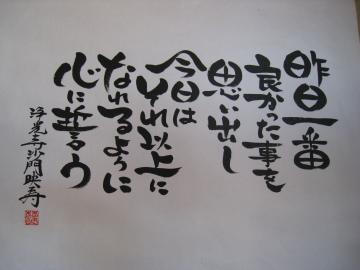 昨日一番
良かった事を
思い出し
今日は
それ以上に
なれるように
心に誓う
浄光寺沙門映寿